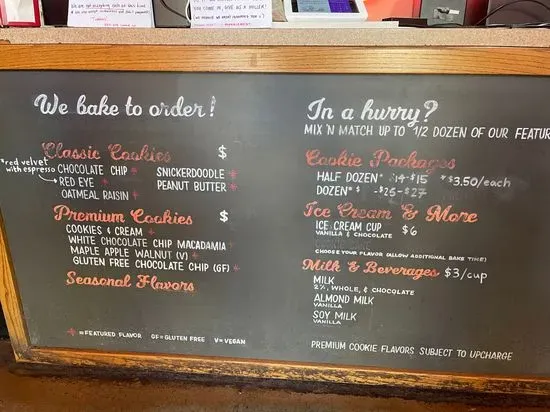 We bake to order!
Classic Cookies $
*red velvet with espresso
CHOCOLATE CHIP * SNICKERDOODLE *
RED EYE * PEANUT BUTTER *
OATMEAL RAISIN *
Premium Cookies $
COOKIES & CREAM *
WHITE CHOCOLATE CHIP MACADAMIA *
MAPLE APPLE WALNUT (V) *
GLUTEN FREE CHOCOLATE CHIP (GF) *
Seasonal Flavors
* =FEATURED FLAVOR GF=GLUTEN FREE V=VEGAN
In a hurry?
MIX 'N MATCH UP TO 1/2 DOZEN OF OUR FEATUR
Cookie Packages
HALF DOZEN* $14-$15 *$3.50/each
DOZEN* $ -$25-$27
Ice Cream & More
ICE CREAM CUP $6
VANILLA & CHOCOLATE
CHOOSE YOUR FLAVOR (ALLOW ADDITIONAL BAKE TIME)
Milk & Beverages $3/cup
MILK
2%, WHOLE, & CHOCOLATE
ALMOND MILK
VANILLA
SOY MILK
VANILLA
PREMIUM COOKIE FLAVORS SUBJECT TO UPCHARGE